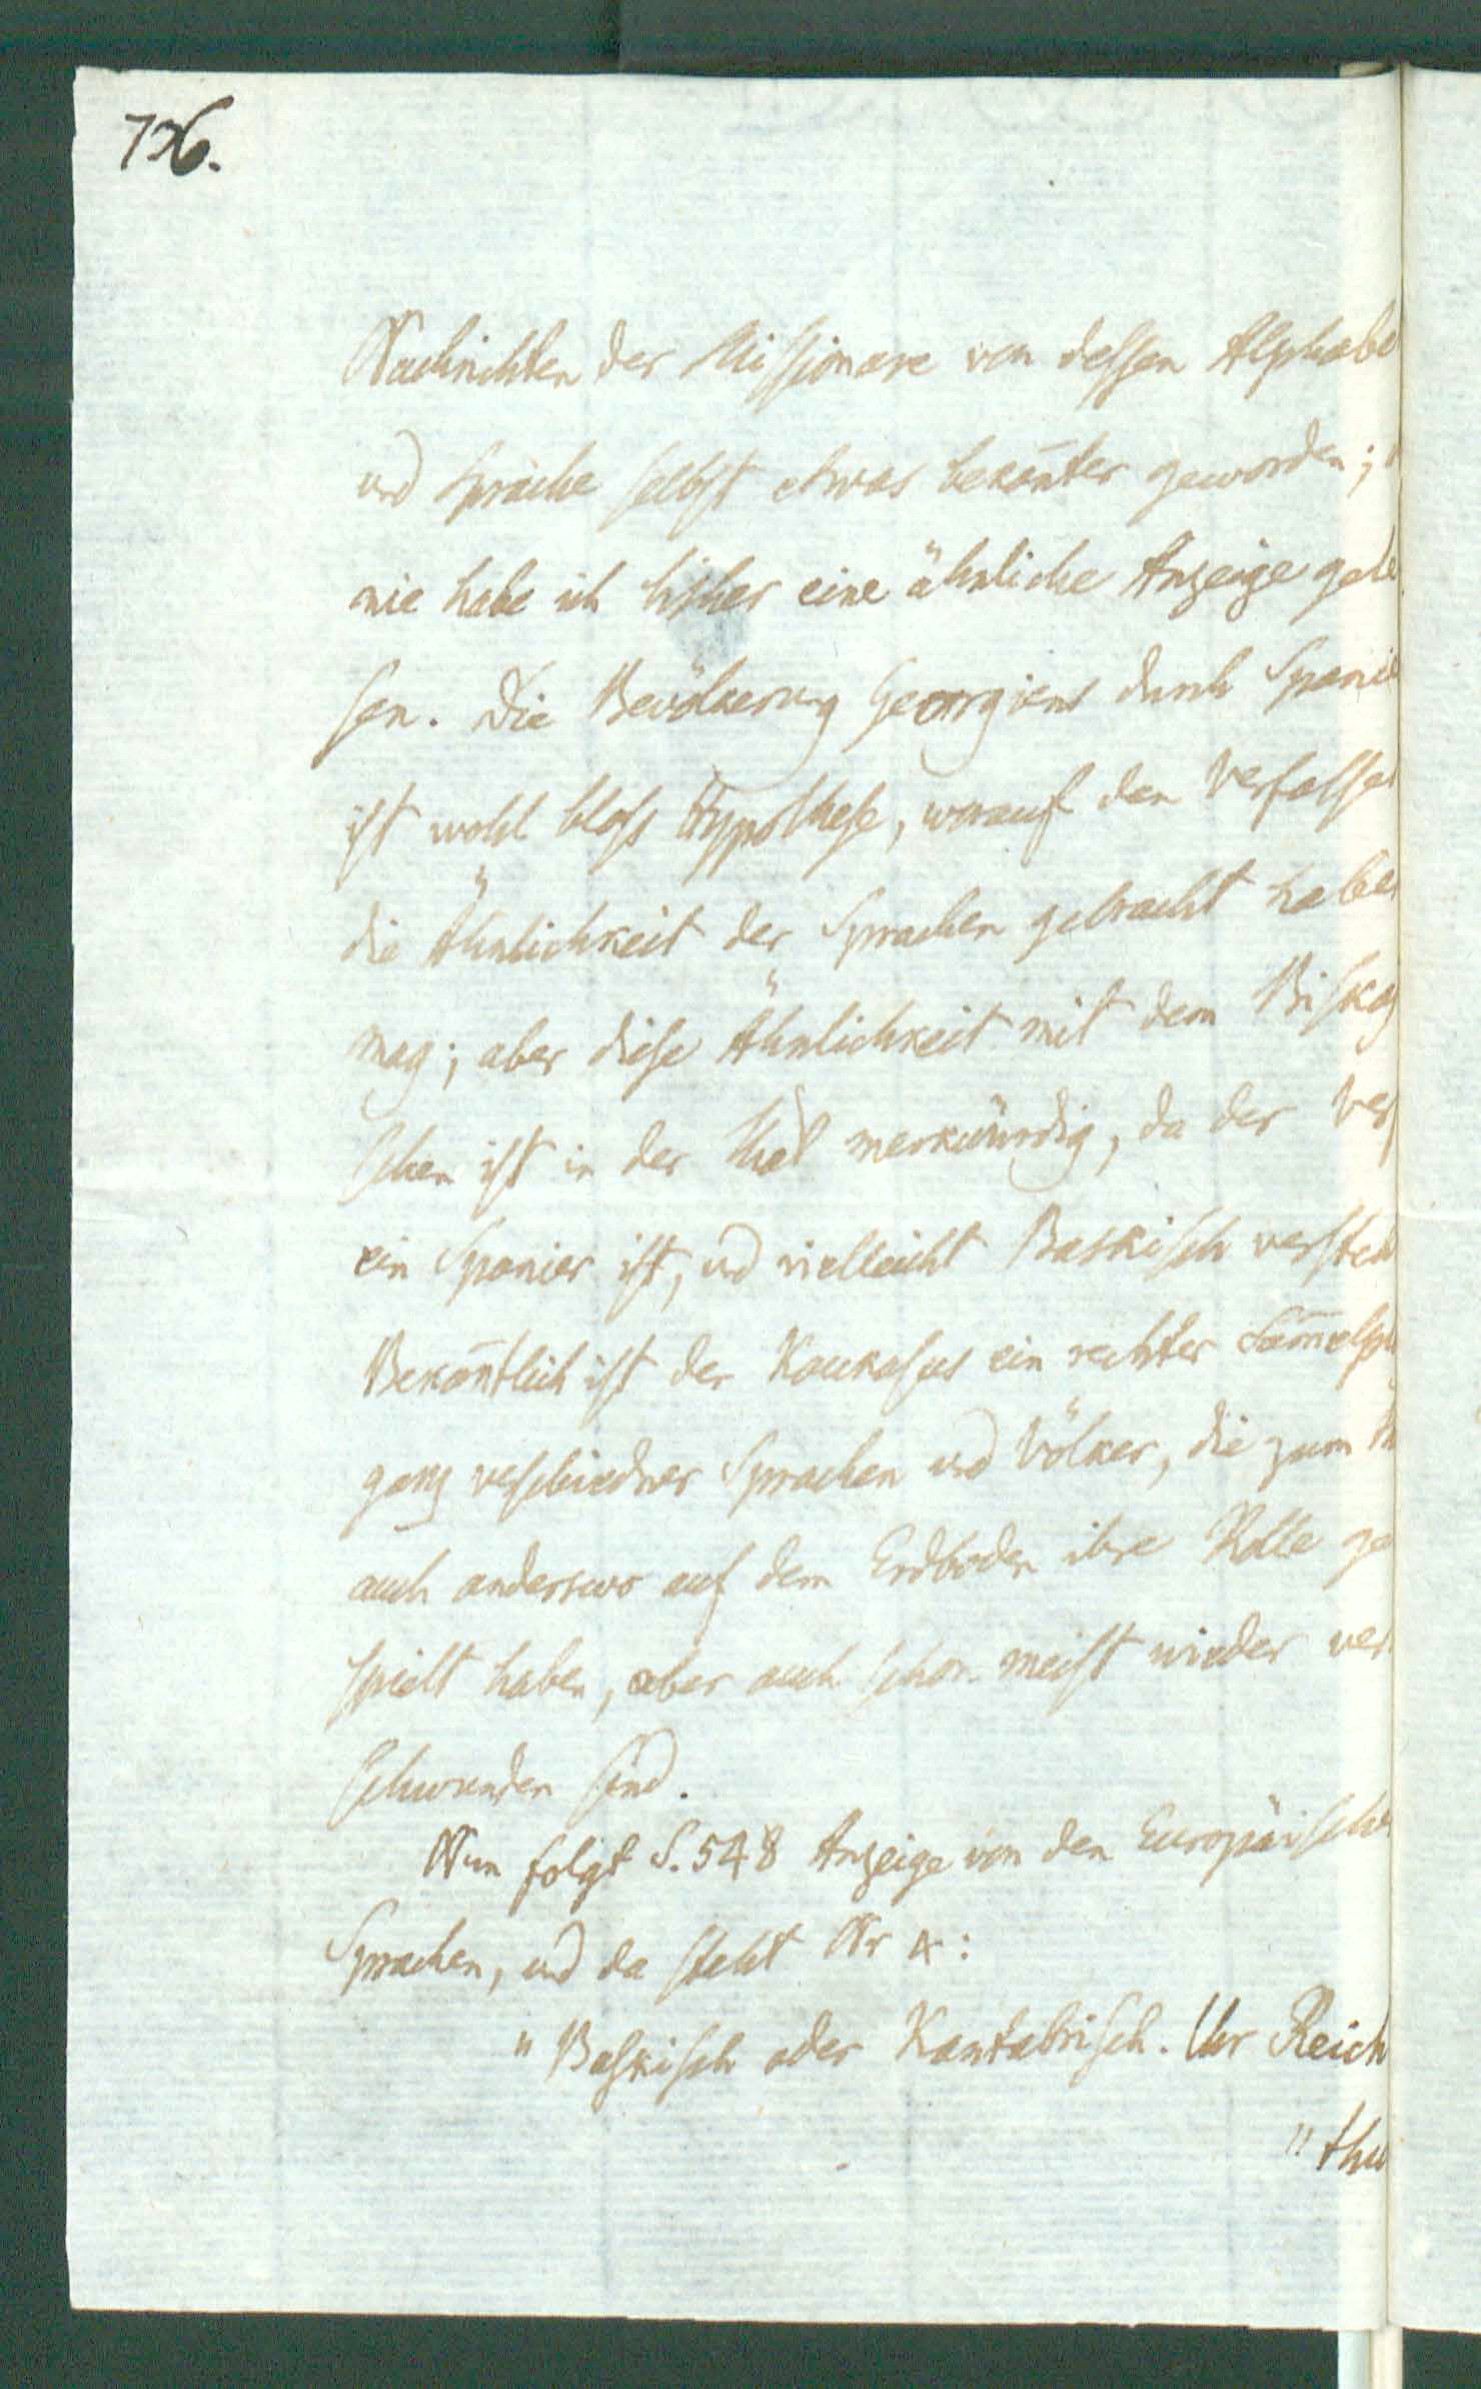 736.
Nachrichten der Missionare von dessen Alphabe
und Sprache selbst etwas bekan̄ter geworden;
nie habe ich bisher eine ähnliche Anzeige gele
sen. Die Bevölkerung Georgiens durch Spanie
ist wohl bloss Hypothese, worauf den Verfasser
die Ähnlichkeit der Sprachen gebracht haben
mag; aber diese Ähnlichkeit mit dem Biskay
schen ist in der That merkwürdig, da der Verf
ein Spanier ist, und vielleicht Baskisch versteh
Bekan̄tlich ist der Kaukasus ein rechter Sam̄elpl
ganz verschiedner Sprachen und Völker, die zum
auch anderswo auf dem Erdboden ihre Rolle ge
spielt haben, aber auch schon meist wieder ver
schwunden sind.
Nun folgt S. 548 Anzeige von den Europäische
Sprachen, und da steht Nr 4:
"Baskisch oder Kantabrisch. Ihr Reich
"thu